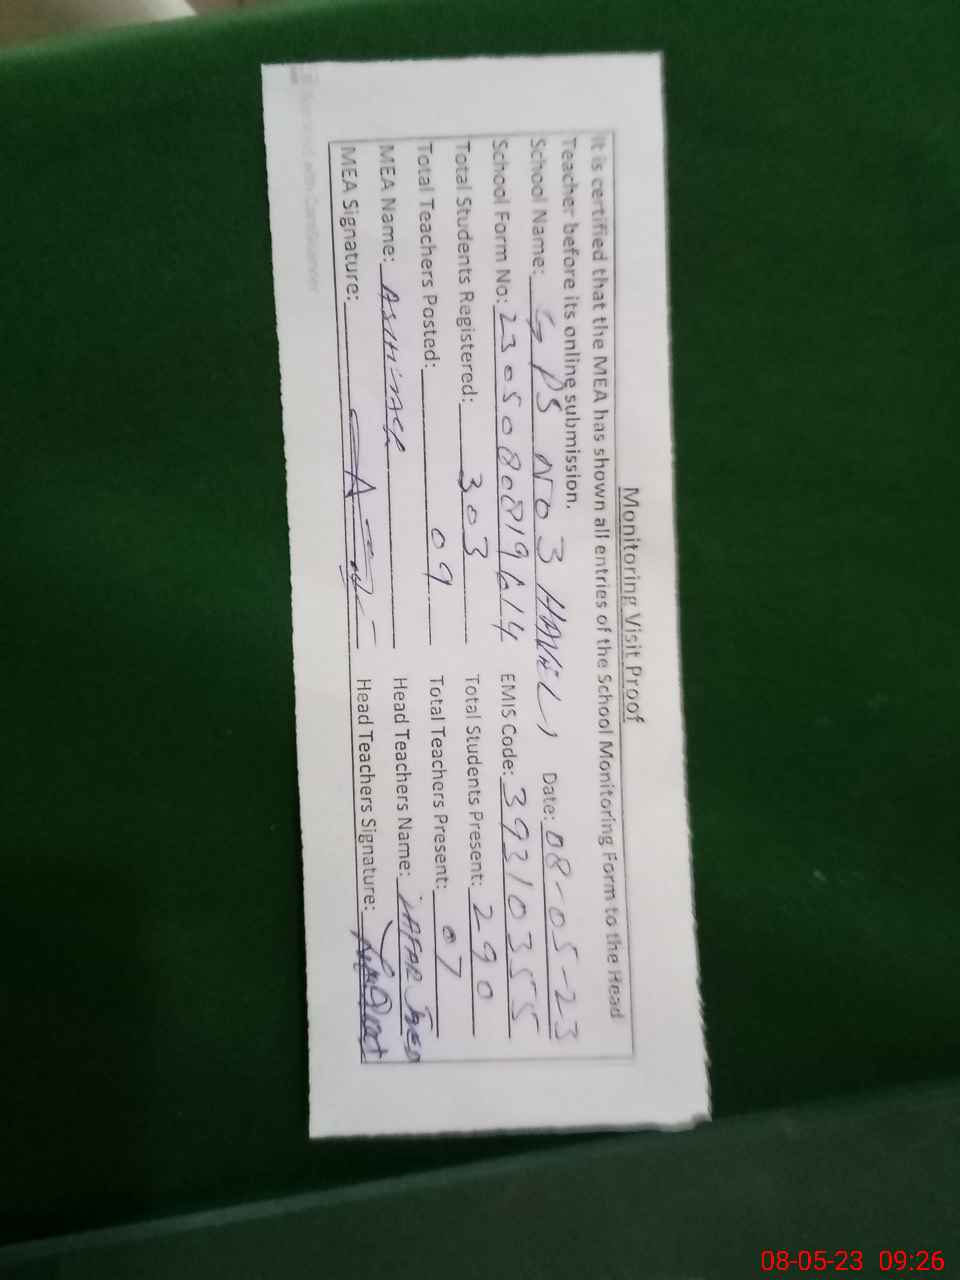 Monitoring Visit Proof
It is certified that the MEA has shown all entries of the School Monitoring Form to the Head
Teacher before its online submission.
School Name: GPS NO 3 HAVELI Date: 08-05-23
School Form No: 2305080819614 EMIS Code: 39310355
Total Students Registered: 303 Total Students Present: 290
Total Teachers Posted: 09 Total Teachers Present: 07
MEA Name: Head Teachers Name:
MEA Signature: Head Teachers Signature:
Scanned with CamScanner
08-05-23 09:26